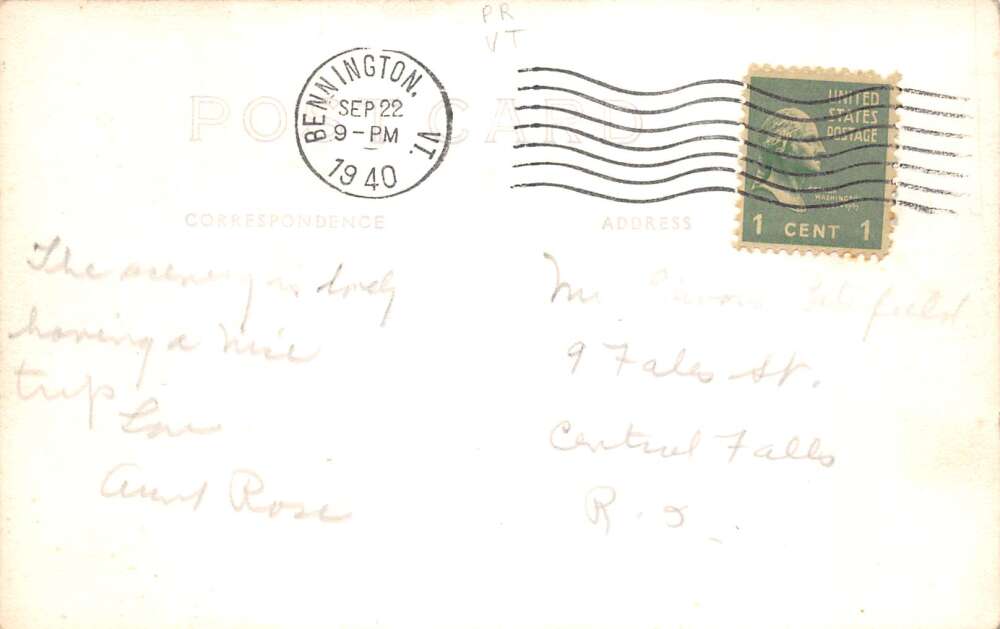 PR
VT
POST CARD
BENNINGTON, VT.
SEP 22
9-PM
1940
UNITED
STATES
POSTAGE
WASHINGTON
1 CENT 1
CORRESPONDENCE
ADDRESS
The scenery is lovely
having a nice
trip
Love
Aunt Rose
Mr
9 Fales St.
Central Falls
R. I.